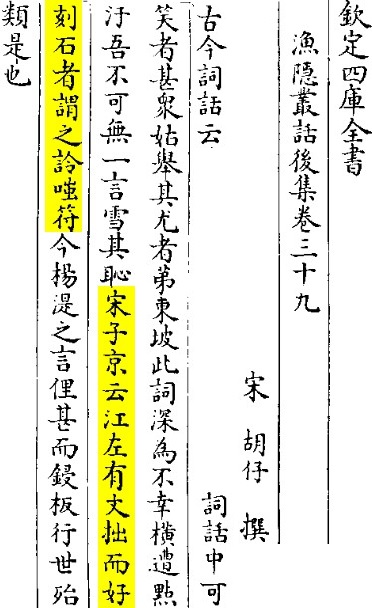 欽定四庫全書
漁隱叢話後集卷三十九
宋 胡仔 撰
古今詞話云 詞話中可
笑者甚衆姑舉其尤者第東坡此詞深為不幸橫遭點
汙吾不可無一言雪其恥宋子京云江左有文拙而好
刻石者謂之詅嗤符今楊湜之言俚甚而鋟板行世殆
類是也